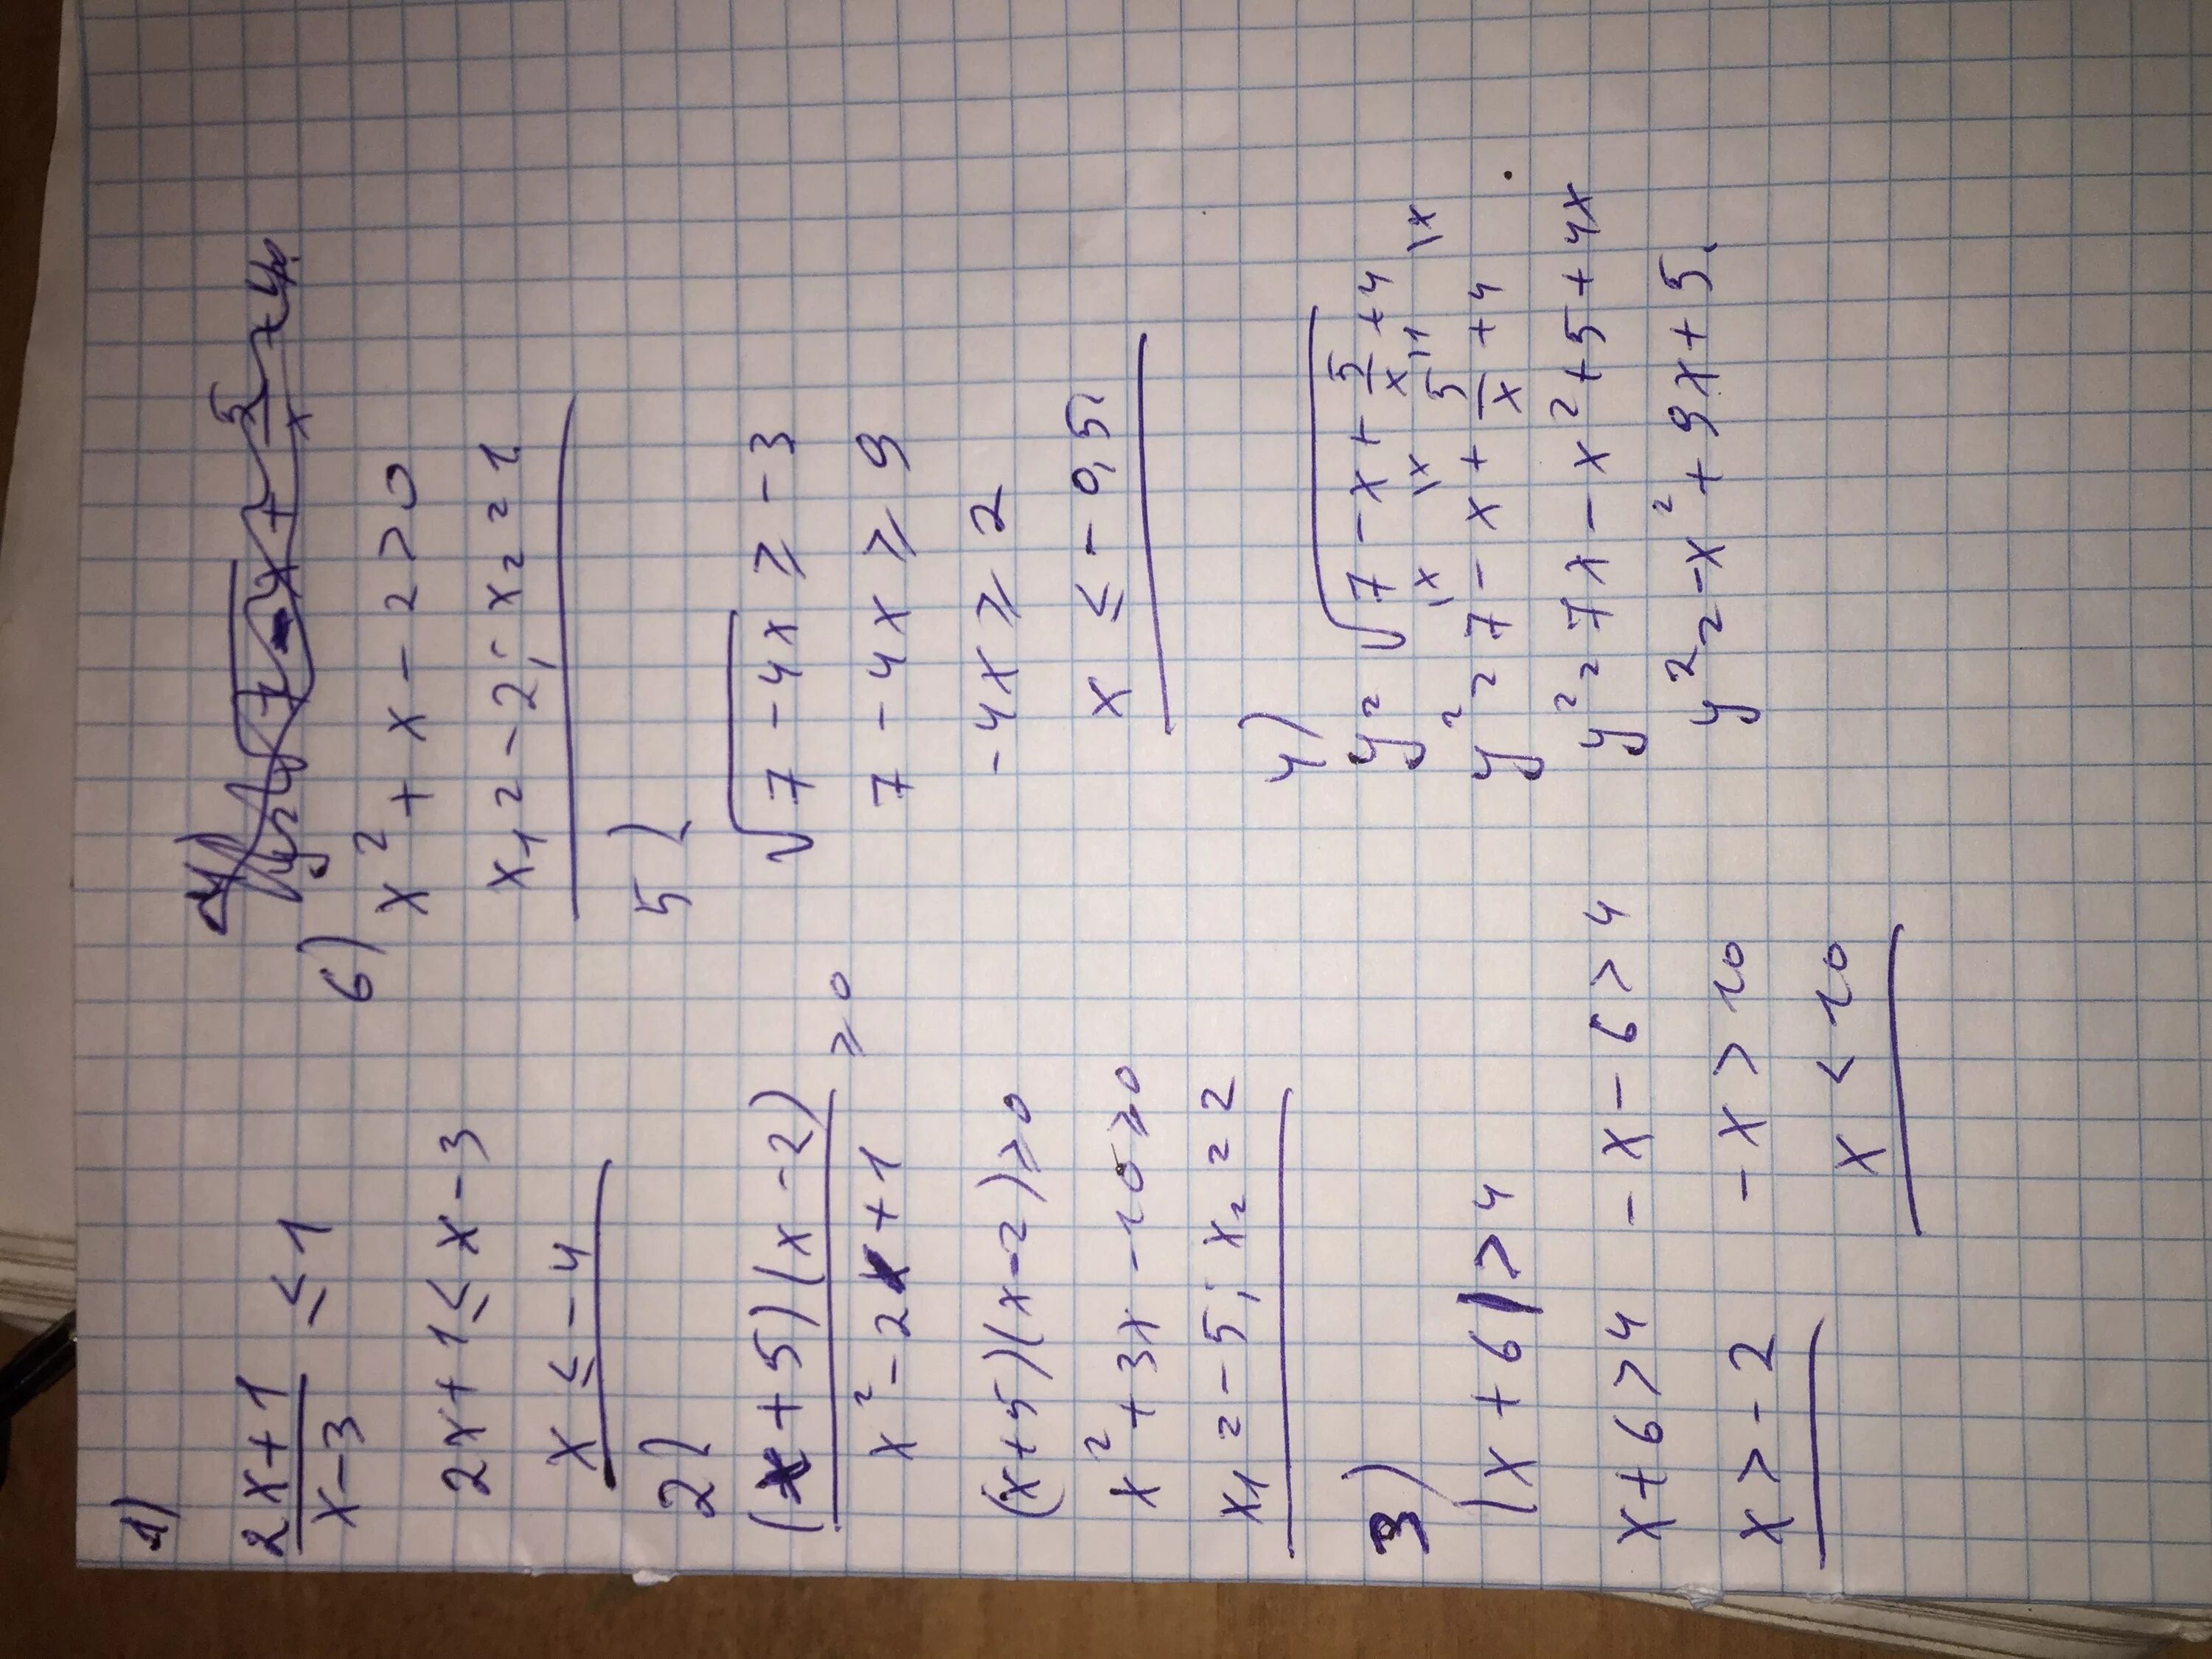 1)
2x+1 / x-3 ≤ 1
2x+1 ≤ x-3
x ≤ -4
2)
(x+5)(x-2) / x²-2x+1 ≥ 0
(x+5)(x-2) ≥ 0
x²+3x-10 ≥ 0
x₁ = -5; x₂ = 2
3)
|x+6| > 4
x+6 > 4   -x-6 > 4
x > -2   -x > 10
x < 10
6)
x²+x-2 > 0
x₁ = -2; x₂ = 1
5)
√7-4x ≥ -3
7-4x ≥ 9
-4x ≥ 2
x ≤ -0,5
4)
y = √7-x+5/x+4
y² = 7-x+5/x+4
y² = 7x-x²+5+4x
y² = -x²+9x+5.